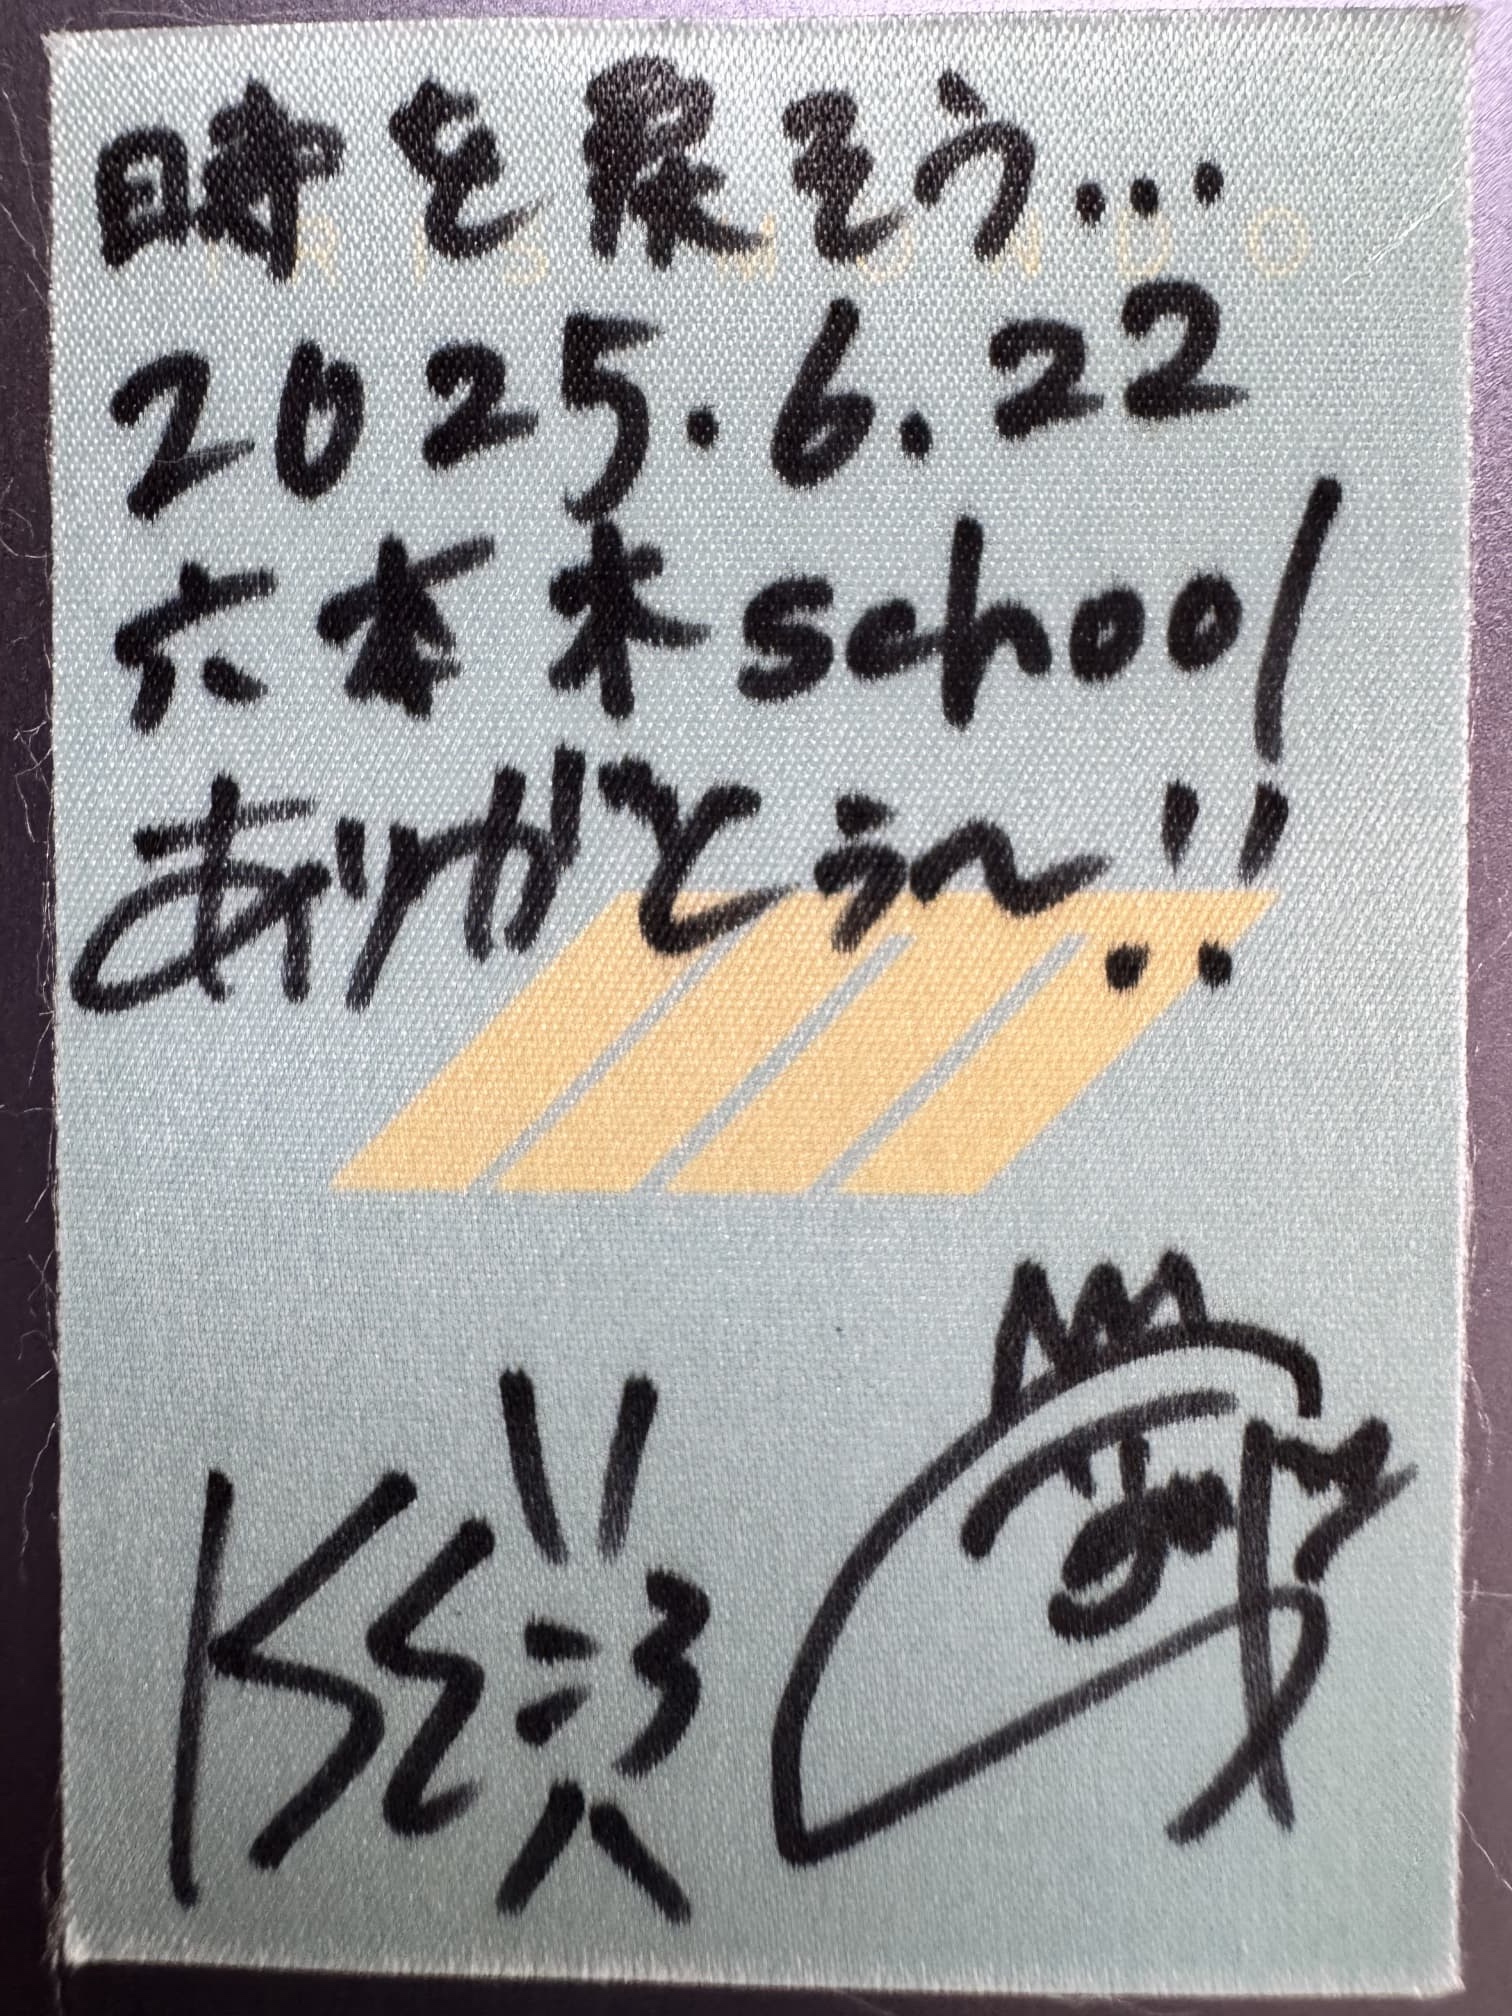 時を戻そう...
IRIS MONDO
2025.6.22
六本木school
ありがとう〜!!